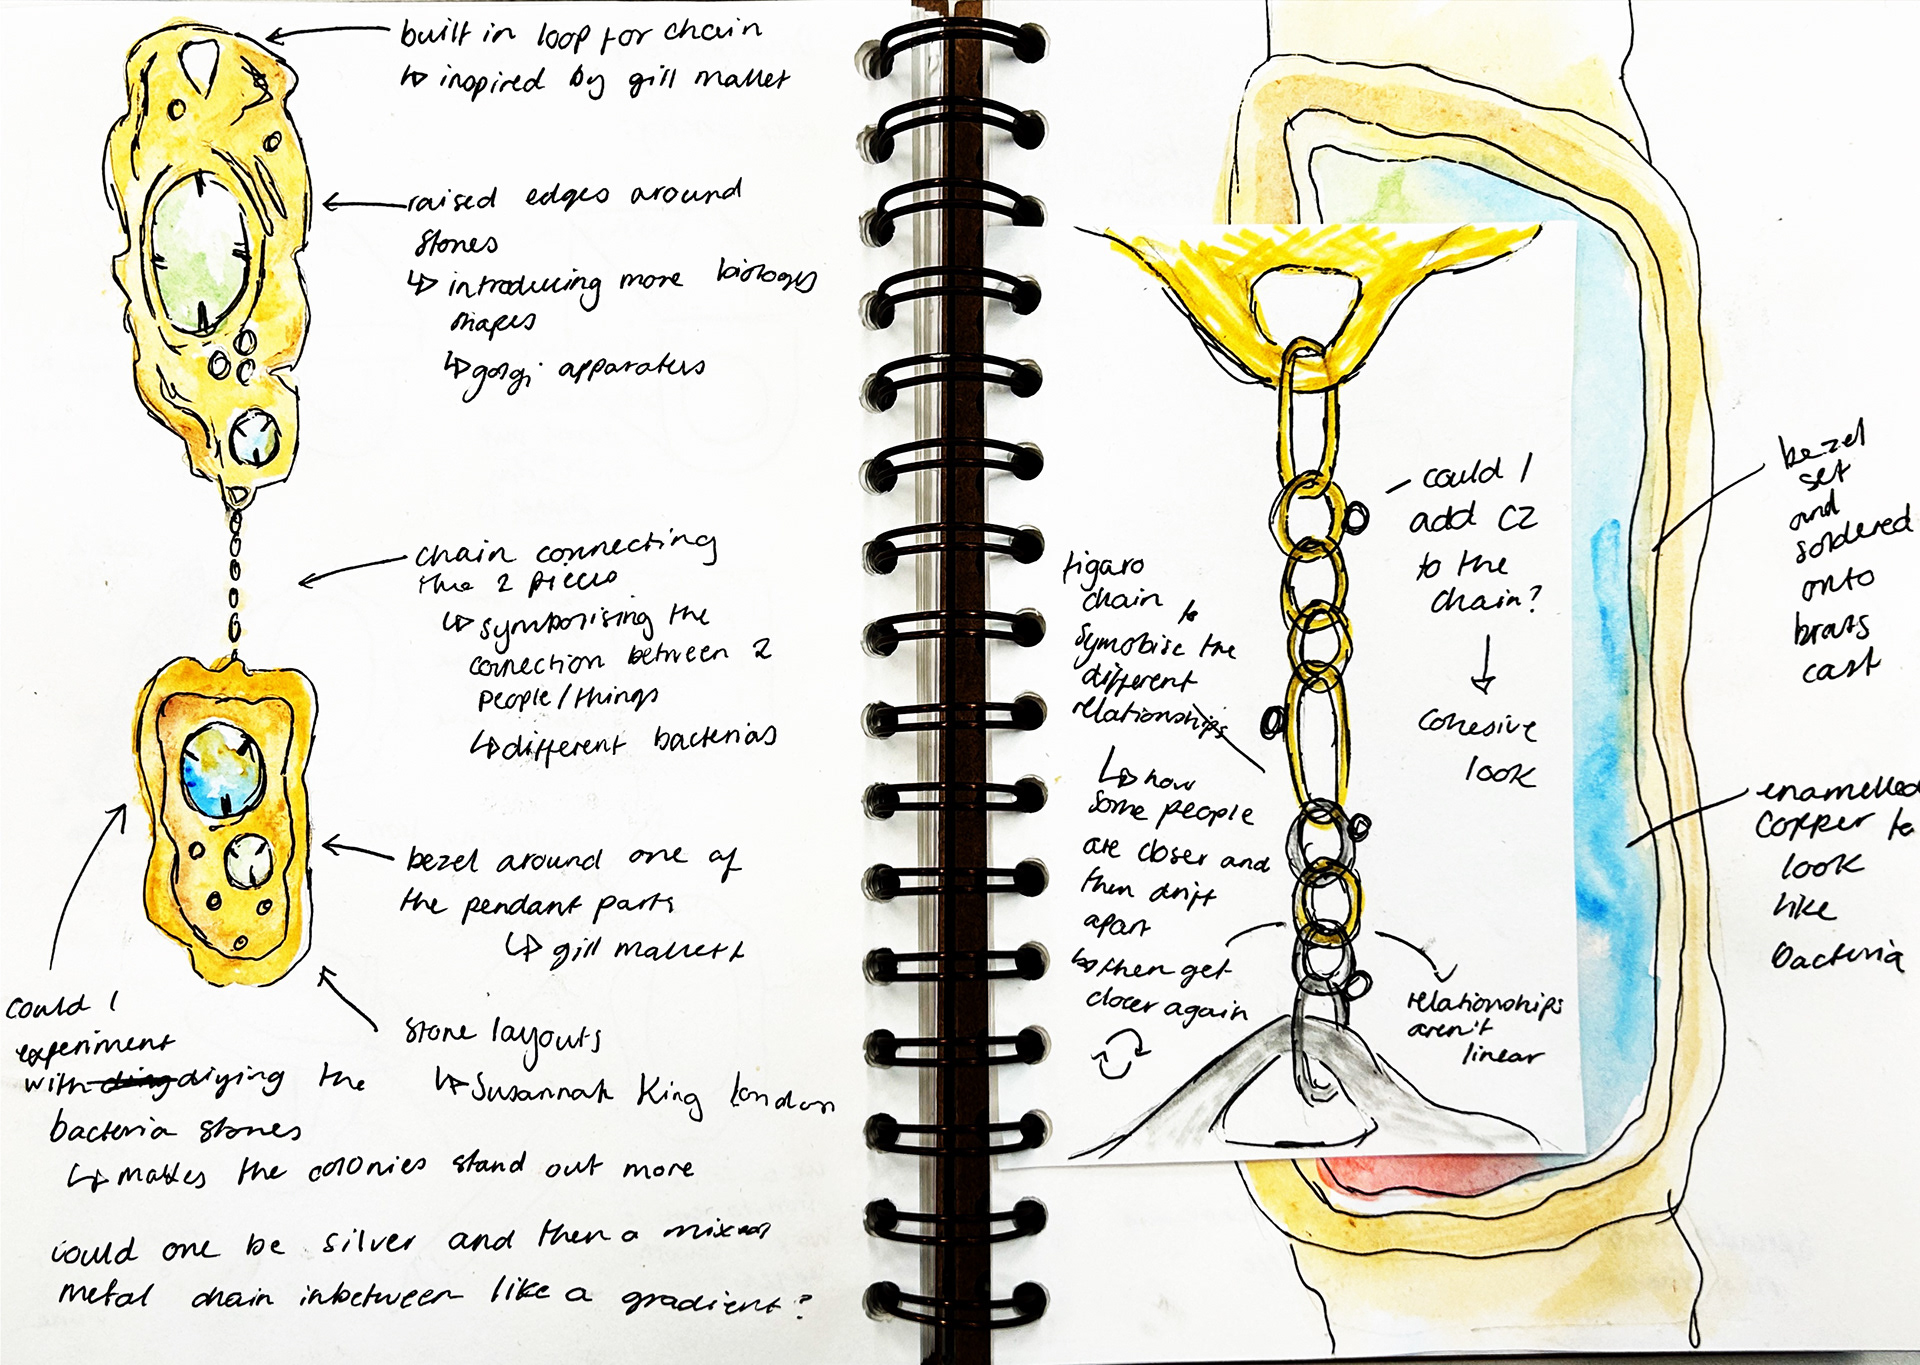 built in loop for chain
↳ inspired by gill mallet
raised edges around
stones
↳ introducing more biology
shapes
↳ golgi apparatus
chain connecting
the 2 pieces
↳ symbolising the
connection between 2
people/things
↳ different bacterias
bezel around one of
the pendant parts
↳ gill mallett
stone layouts
↳ Susannah King London
could I
experiment
with diying the
bacteria stones
↳ makes the colonies stand out more
could one be silver and then a mixed
metal chain inbetween like a gradient?
figaro
chain to
symobise the
different
relationships
↳ how
some people
are closer and
then drift
apart
↳ then get
closer again
could I
add CZ
to the
chain?
cohesive
look
relationships
aren't
linear
bezel
set
and
soldered
onto
brass
cast
enamelled
copper to
look
like
bacteria